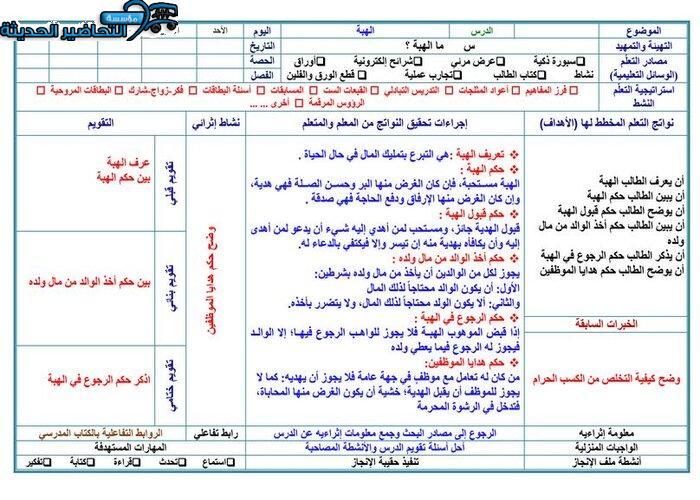 مؤسسة
التحاضير الحديثة
الموضوع
الدرس
الهبة
اليوم
الأحد
التهيئة والتمهيد
س ما الهبة ؟
التاريخ
مصادر التعلم
(الوسائل التعليمية)
سبورة ذكية
عرض مرئي
شرائح إلكترونية
أوراق
نشاط
كتاب الطالب
تجارب عملية
قطع الورق والفلين
الحصة
الفصل
استراتيجية التعلم
النشط
فرز المفاهيم
أعداد المثلجات
التدريس التبادلي
القبعات الست
المسابقات
أسئلة البطاقات
فكر-زواج-شارك
البطاقات المروحية
الرؤوس المرقمة
أخرى ... ...
نواتج التعلم المخطط لها (الأهداف)
إجراءات تحقيق النواتج من المعلم والمتعلم
نشاط إثرائي
التقويم
أن يعرف الطالب الهبة
أن يبين الطالب حكم الهبة
أن يوضح الطالب حكم قبول الهبة
أن يبين الطالب حكم أخذ الوالد من مال
ولده
أن يذكر الطالب حكم الرجوع في الهبة
أن يوضح الطالب حكم هدايا الموظفين
الخبرات السابقة
وضح كيفية التخلص من الكسب الحرام
تعريف الهبة :هي التبرع بتمليك المال في حال الحياة .
حكم الهبة :
الهبة مستحبة، فإن كان الغرض منها البر وحسن الصلة فهي هدية،
وإن كان الغرض منها الإرفاق ودفع الحاجة فهي صدقة .
حكم قبول الهبة :
قبول الهدية جائز، ومستحب لمن أهدي إليه شيء أن يدعو لمن أهدى
إليه وأن يكافأه بهدية منه إن تيسر وإلا فيكتفي بالدعاء له.
حكم أخذ الوالد من مال ولده :
يجوز لكل من الوالدين أن يأخذ من مال ولده بشرطين:
الأول: أن يكون الوالد محتاجاً لذلك المال.
والثاني: ألا يكون الولد محتاجاً لذلك المال، ولا يتضرر بأخذه.
حكم الرجوع في الهبة :
إذا قبض الموهوب الهبة فلا يجوز للواهب الرجوع فيها؛ إلا الوالد
يجوز له الرجوع فيما يعطي ولده
حكم هدايا الموظفين:
من كان له تعامل مع موظف في جهة عامة فلا يجوز أن يهديه: كما لا
يجوز للموظف أن يقبل الهدية؛ خشية أن يكون الغرض منها المحاباة،
فتدخل في الرشوة المحرمة
وضح حكم هدايا الموظفين
تقويم قبلي
عرف الهبة
بين حكم الهبة
تقويم بنائي
بين حكم أخذ الوالد من مال ولده
تقويم ختامي
اذكر حكم الرجوع في الهبة
معلومة إثراءيه
الرجوع إلى مصادر البحث وجمع معلومات إثراءيه عن الدرس
رابط تفاعلي
الروابط التفاعلية بالكتاب المدرسي
الواجبات المنزلية
أحل أسئلة تقويم الدرس والأنشطة المصاحبة
المهارات المستهدفة
أنشطة ملف الإنجاز
تنفيذ حقيبة الإنجاز
استماع
تحدث
قراءة
كتابة
تفكير